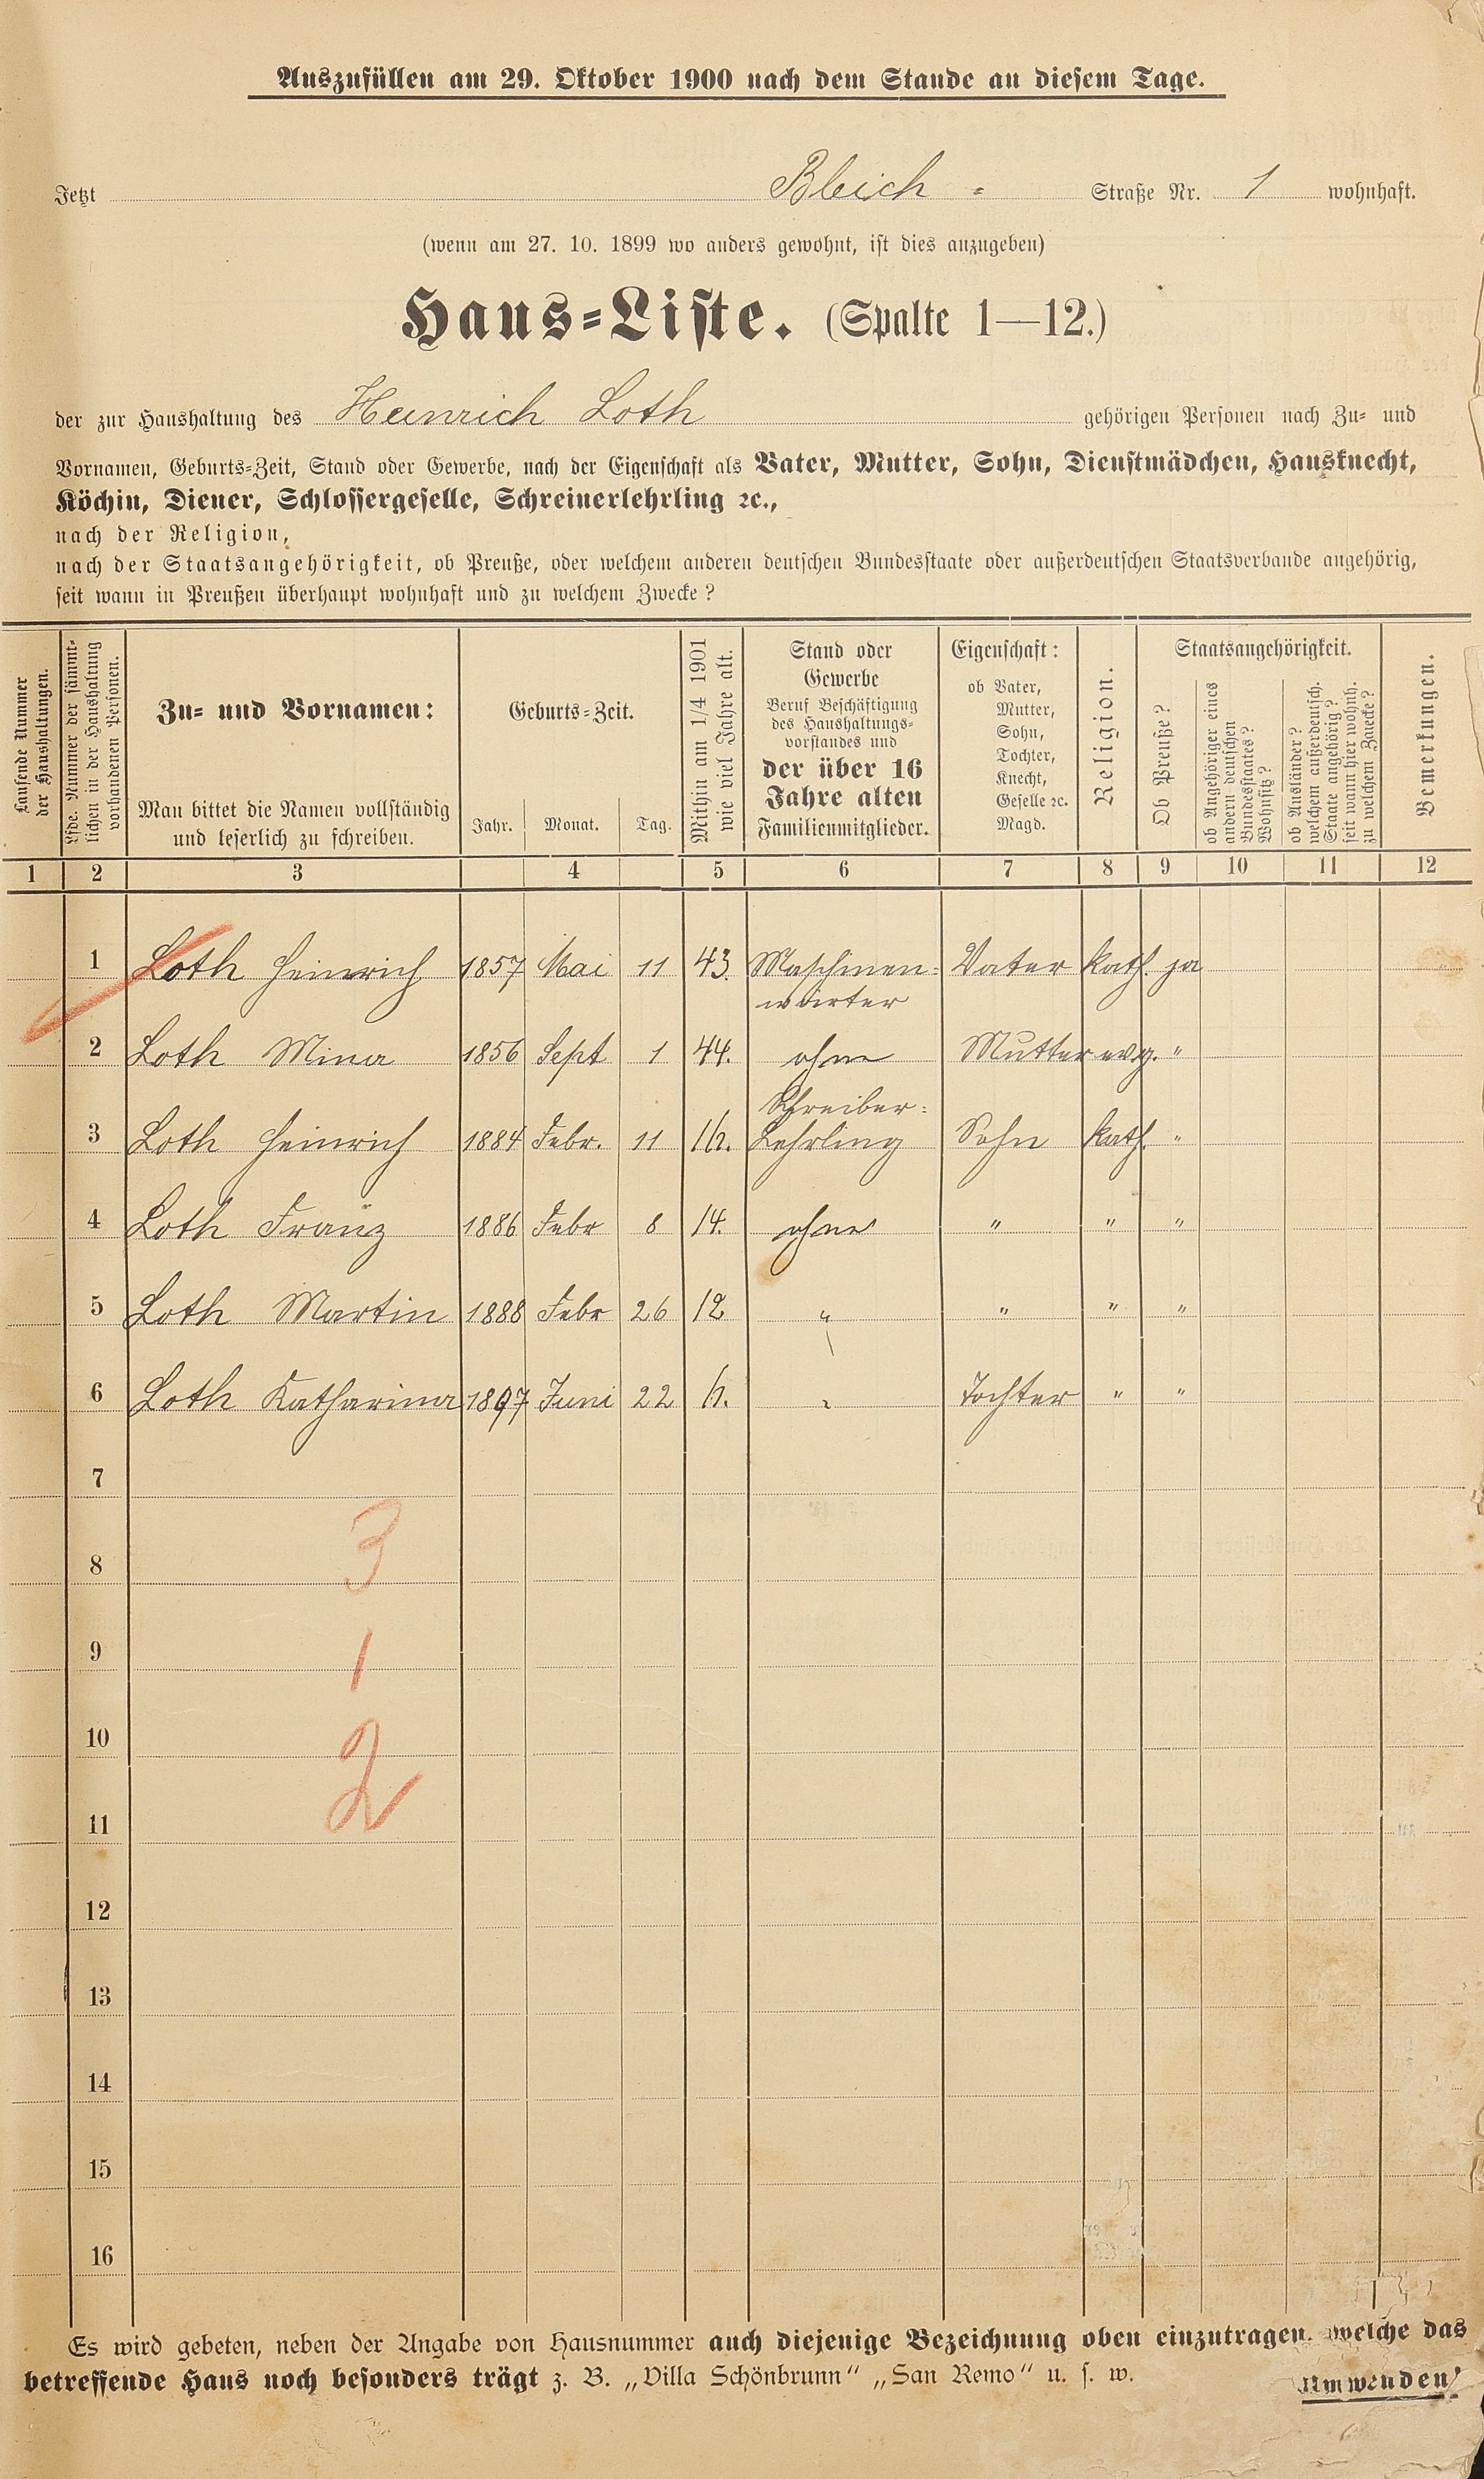 Auszufüllen am 29. Oktober 1900 nach dem Stande an diesem Tage.
Jetzt Bleich - Straße Nr. 1 wohnhaft.
(wenn am 27. 10. 1899 wo anders gewohnt, ist dies anzugeben)
Haus-Liste. (Spalte 1—12.)
der zur Haushaltung des Heinrich Loth gehörigen Personen nach Zu- und
Vornamen, Geburts-Zeit, Stand oder Gewerbe, nach der Eigenschaft als Vater, Mutter, Sohn, Dienstmädchen, Hausknecht,
Köchin, Diener, Schlossergeselle, Schreinerlehrling ꝛc.,
nach der Religion,
nach der Staatsangehörigkeit, ob Preuße, oder welchem anderen deutschen Bundesstaate oder außerdeutschen Staatsverbande angehörig,
seit wann in Preußen überhaupt wohnhaft und zu welchem Zwecke?
Laufende Nummer
der Haushaltungen.
Lfde. Nummer der sämmt-
lichen in der Haushaltung
vorhandenen Personen.
Zu- und Vornamen:
Man bittet die Namen vollständig
und leserlich zu schreiben.
Geburts-Zeit.
Jahr. Monat. Tag.
Mithin am 1/4 1901
wie viel Jahre alt.
Stand oder
Gewerbe
Beruf Beschäftigung
des Haushaltungs-
vorstandes und
der über 16
Jahre alten
Familienmitglieder.
Eigenschaft:
ob Vater,
Mutter,
Sohn,
Tochter,
Knecht,
Geselle ꝛc.
Magd.
Religion.
Staatsangehörigkeit.
Ob Preuße?
ob Angehöriger eines
andern deutschen
Bundesstaates?
Wohnsitz?
ob Ausländer?
welchem außerdeutsch.
Staate angehörig?
seit wann hier wohnh.
zu welchem Zwecke?
Bemerkungen.
1 2 3 4 5 6 7 8 9 10 11 12
1 Loth Heinrich 1857 Mai 11 43. Maschinen- Vater kath. ja
wärter
2 Loth Mina 1856 Sept 1 44. ohne Mutter evg. "
Schreiber-
3 Loth Heinrich 1884 Febr. 11 16. Lehrling Sohn kath. "
4 Loth Franz 1886 Febr 8 14. ohne " " "
5 Loth Martin 1888 Febr 26 12 " " " "
6 Loth Katharina 1897 Juni 22 " Tochter " "
7
3
8
9
1
10
2
11
12
13
14
15
16
Es wird gebeten, neben der Angabe von Hausnummer auch diejenige Bezeichnung oben einzutragen. welche das
betreffende Haus noch besonders trägt z. B. „Villa Schönbrunn" „San Remo" u. s. w.
Umwenden!